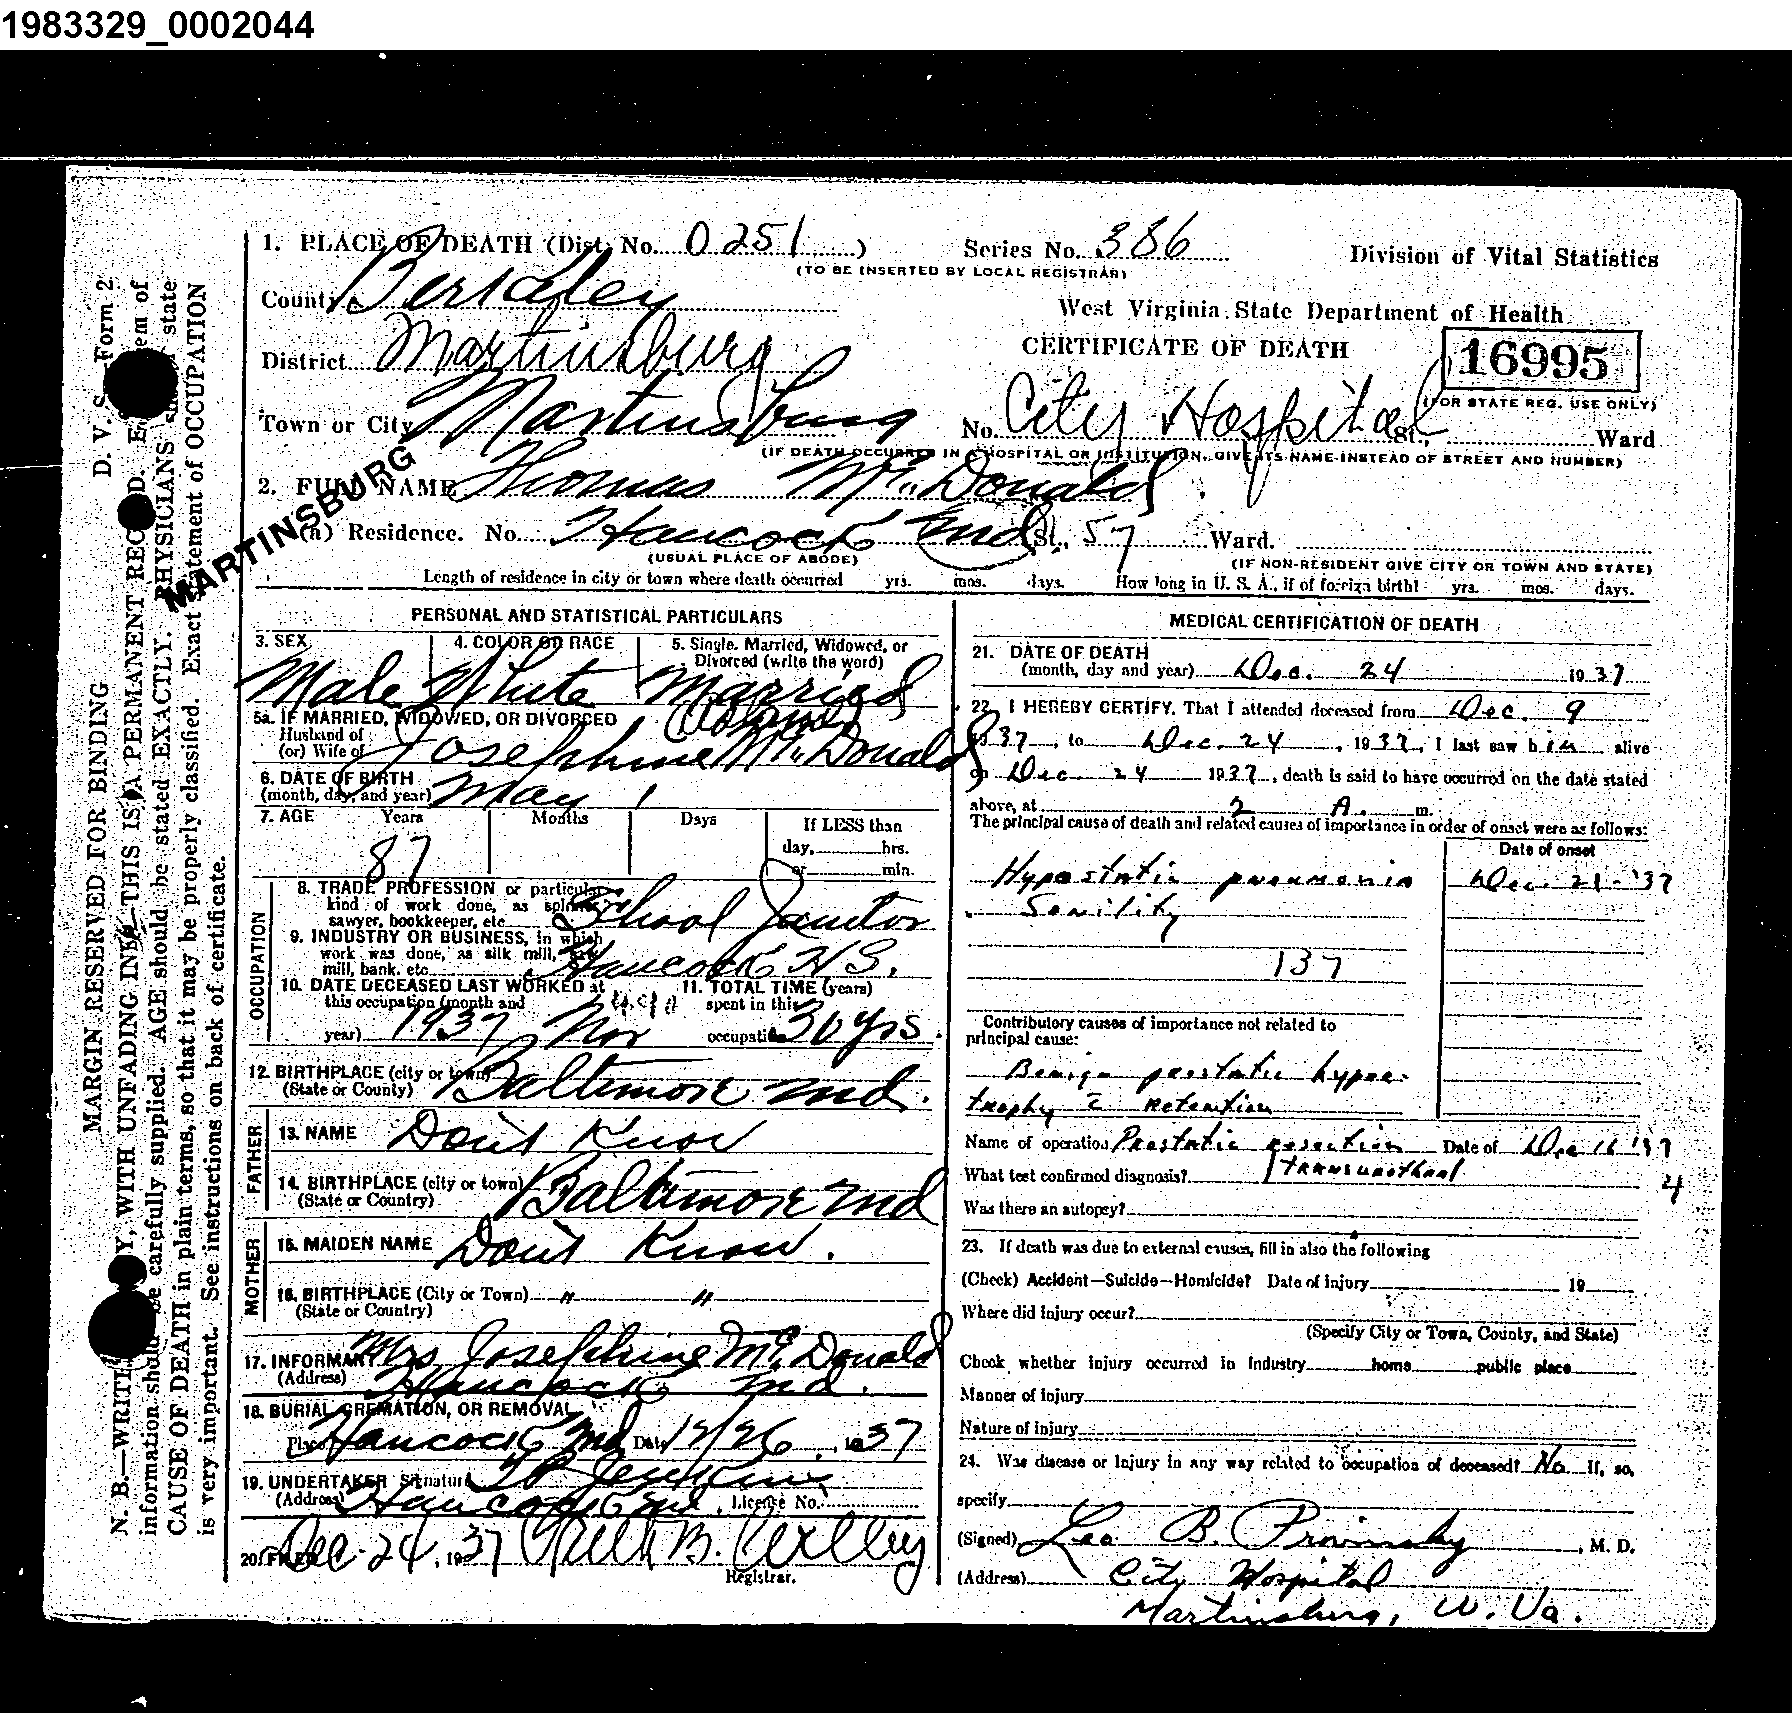 1983329_0002044
1. PLACE OF DEATH (Dist. No. 0251 )
Series No. 386
(TO BE INSERTED BY LOCAL REGISTRAR)
Division of Vital Statistics
County Berkeley
West Virginia State Department of Health
District Martinsburg
CERTIFICATE OF DEATH
16995
(FOR STATE REG. USE ONLY)
Town or City Martinsburg No. City Hospital St., Ward
(IF DEATH OCCURRED IN A HOSPITAL OR INSTITUTION, GIVE ITS NAME INSTEAD OF STREET AND NUMBER)
2. FULL NAME Thomas McDonald
MARTINSBURG
(a) Residence. No. Hancock Md St., 57 Ward.
(USUAL PLACE OF ABODE)
(IF NON-RESIDENT GIVE CITY OR TOWN AND STATE)
Length of residence in city or town where death occurred yrs. mos. days. How long in U. S. A., if of foreign birth? yrs. mos. days.
PERSONAL AND STATISTICAL PARTICULARS
3. SEX 4. COLOR OR RACE 5. Single, Married, Widowed, or
Divorced (write the word)
Male White Married
5a. IF MARRIED, WIDOWED, OR DIVORCED
Husband of
(or) Wife of Josephine McDonald
6. DATE OF BIRTH
(month, day, and year) May 1
7. AGE Years Months Days If LESS than
day, hrs.
or min.
87
OCCUPATION
8. TRADE PROFESSION or particular
kind of work done, as spinner
sawyer, bookkeeper, etc. School Janitor
9. INDUSTRY OR BUSINESS, in which
work was done, as silk mill, saw
mill, bank, etc. Hancock H S.
10. DATE DECEASED LAST WORKED at
this occupation (month and
year) 1937 Nov
11. TOTAL TIME (years)
spent in this
occupation 30 yrs.
12. BIRTHPLACE (city or town)
(State or County) Baltimore Md.
FATHER
13. NAME Don't Know
14. BIRTHPLACE (city or town)
(State or Country) Baltimore Md
MOTHER
15. MAIDEN NAME Don't Know.
16. BIRTHPLACE (City or Town) " "
(State or Country)
17. INFORMANT Mrs Josephine McDonald
(Address) Hancock Md.
18. BURIAL, CREMATION, OR REMOVAL
Place Hancock Md Date 12/26, 1937
19. UNDERTAKER Signature Jenkins
(Address) Hancock Md. License No.
20. FILED Dec-24, 1937 B.
Registrar.
MEDICAL CERTIFICATION OF DEATH
21. DATE OF DEATH
(month, day and year) Dec. 24 1937
22. I HEREBY CERTIFY, That I attended deceased from Dec. 9
1937, to Dec. 24, 1937, I last saw him alive
on Dec. 24 1937, death is said to have occurred on the date stated
above, at 2 A. m.
The principal cause of death and related causes of importance in order of onset were as follows:
Date of onset
Hypostatic pneumonia Dec. 21-'37
Senility
137
Contributory causes of importance not related to
principal cause:
Benign prostatic hyper-
trophy c retention
Name of operation Prostatic resection Date of Dec 16 '37
transurethral
What test confirmed diagnosis?
4
Was there an autopsy?
23. If death was due to external causes, fill in also the following
(Check) Accident—Suicide—Homicide? Date of injury 19
Where did injury occur?
(Specify City or Town, County, and State)
Check whether injury occurred in industry home public place
Manner of injury
Nature of injury
24. Was disease or injury in any way related to occupation of deceased? No If, so,
specify
(Signed) Leo B. Provinsky, M. D.
(Address) City Hospital
Martinsburg, W. Va.
D. V. S. Form 2
MARGIN RESERVED FOR BINDING
N. B.—WRITE WITH UNFADING INK—THIS IS A PERMANENT RECORD. Every item of
information should be carefully supplied. AGE should be stated EXACTLY. PHYSICIANS should state
CAUSE OF DEATH in plain terms, so that it may be properly classified. Exact statement of OCCUPATION
is very important. See instructions on back of certificate.